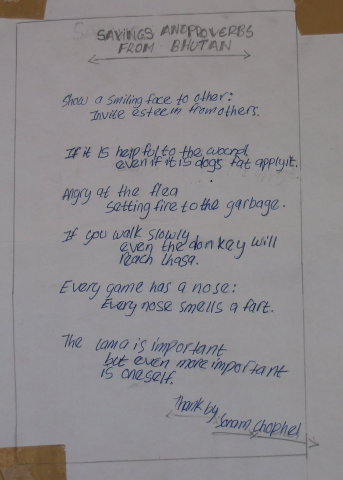 SAYINGS AND PROVERBS
FROM BHUTAN
Show a smiling face to other:
Invite esteem from others.
If it is helpful to the wound
even if it is dogs fat apply it.
Angry at the flea
setting fire to the garbage.
If you walk slowly
even the donkey will
reach Lhasa.
Every game has a nose:
Every nose smells a fart.
The Lama is important
but even more important
is oneself.
Thank by
Sonam Chophel